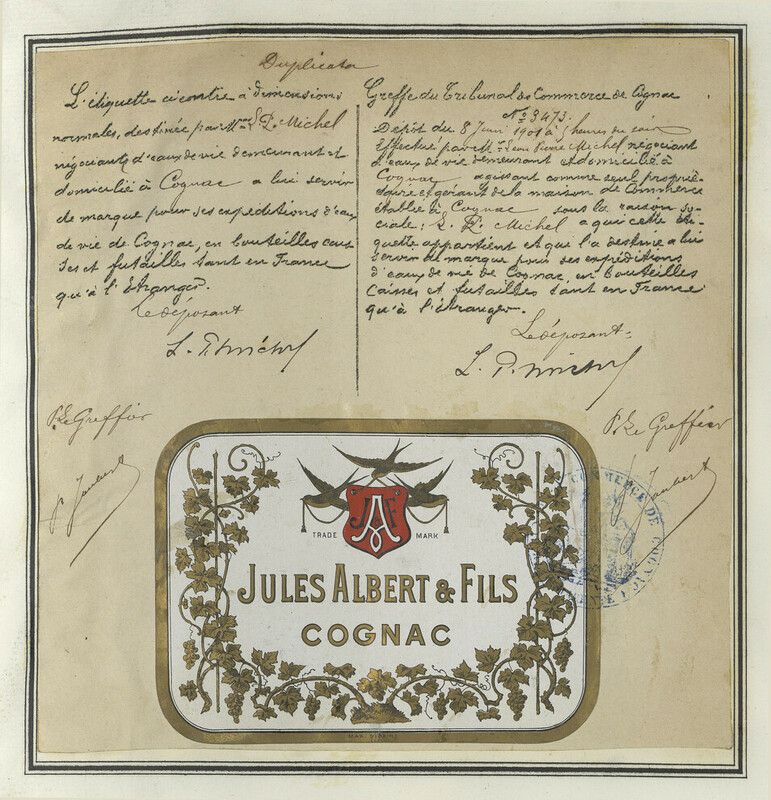 Duplicata
L'étiquette ci contre à dimensions
normales, destinée par Mr L. P. Michel
négociant d'eaux de vie demeurant et
domicilié à Cognac a lui servir
de marque pour ses expéditions d'eaux
de vie de Cognac, en bouteilles cais
ses et futailles tant en France
qu'à l'étranger.
Le déposant
L. P. Michel
Greffe du Tribunal de Commerce de Cognac
No 3473.
Dépôt du 8 Juin 1901 à 5 heures du soir
Effectué par Mr Léon Pierre Michel négociant
d'eaux de vie demeurant et domicilié à
Cognac agissant comme seul proprié-
taire et gérant de la maison de Commerce
établie à Cognac sous la raison so-
ciale: L. P. Michel a qui cette éti-
quette appartient et qui l'a destinée a lui
servir de marque pour ses expéditions
d'eaux de vie de Cognac en bouteilles
caisses et futailles tant en France
qu'à l'étranger.
Le déposant
L. P. Michel
Le Greffier
Le Greffier
COMMERCE DE
TRADE MARK
JAF
JULES ALBERT & FILS
COGNAC